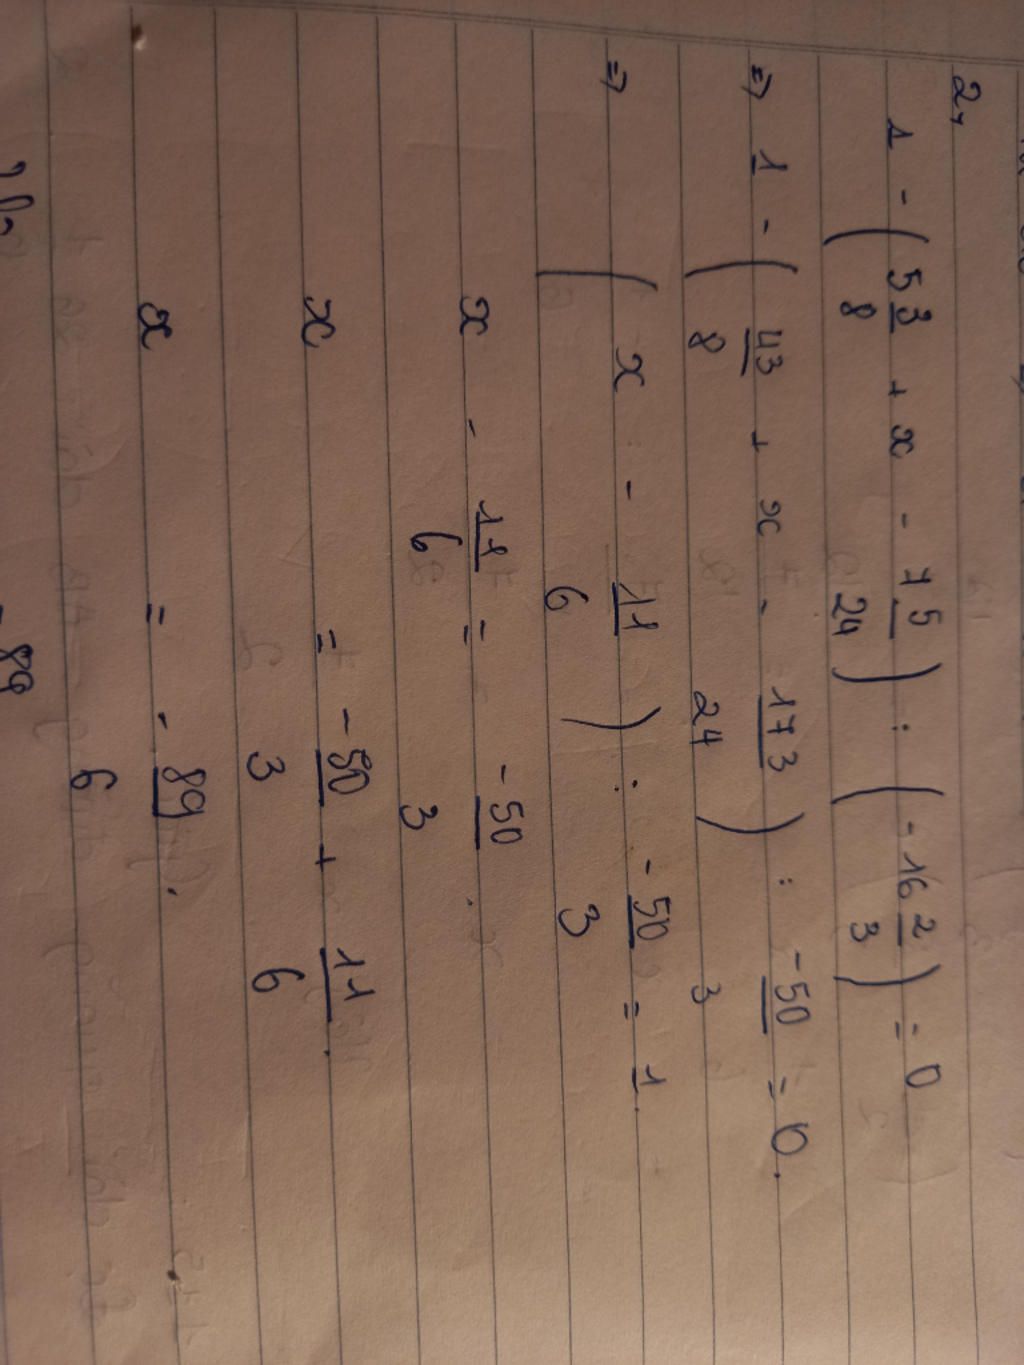 2,
1 - ( 5 3/8 + x - 7 5/24 ) : ( - 16 2/3 ) = 0
=> 1 - ( 43/8 + x - 173/24 ) : -50/3 = 0.
=> ( x - 11/6 ) : -50/3 = 1.
x - 11/6 = -50/3.
x = -50/3 + 11/6.
x = - 89/6.
- 89